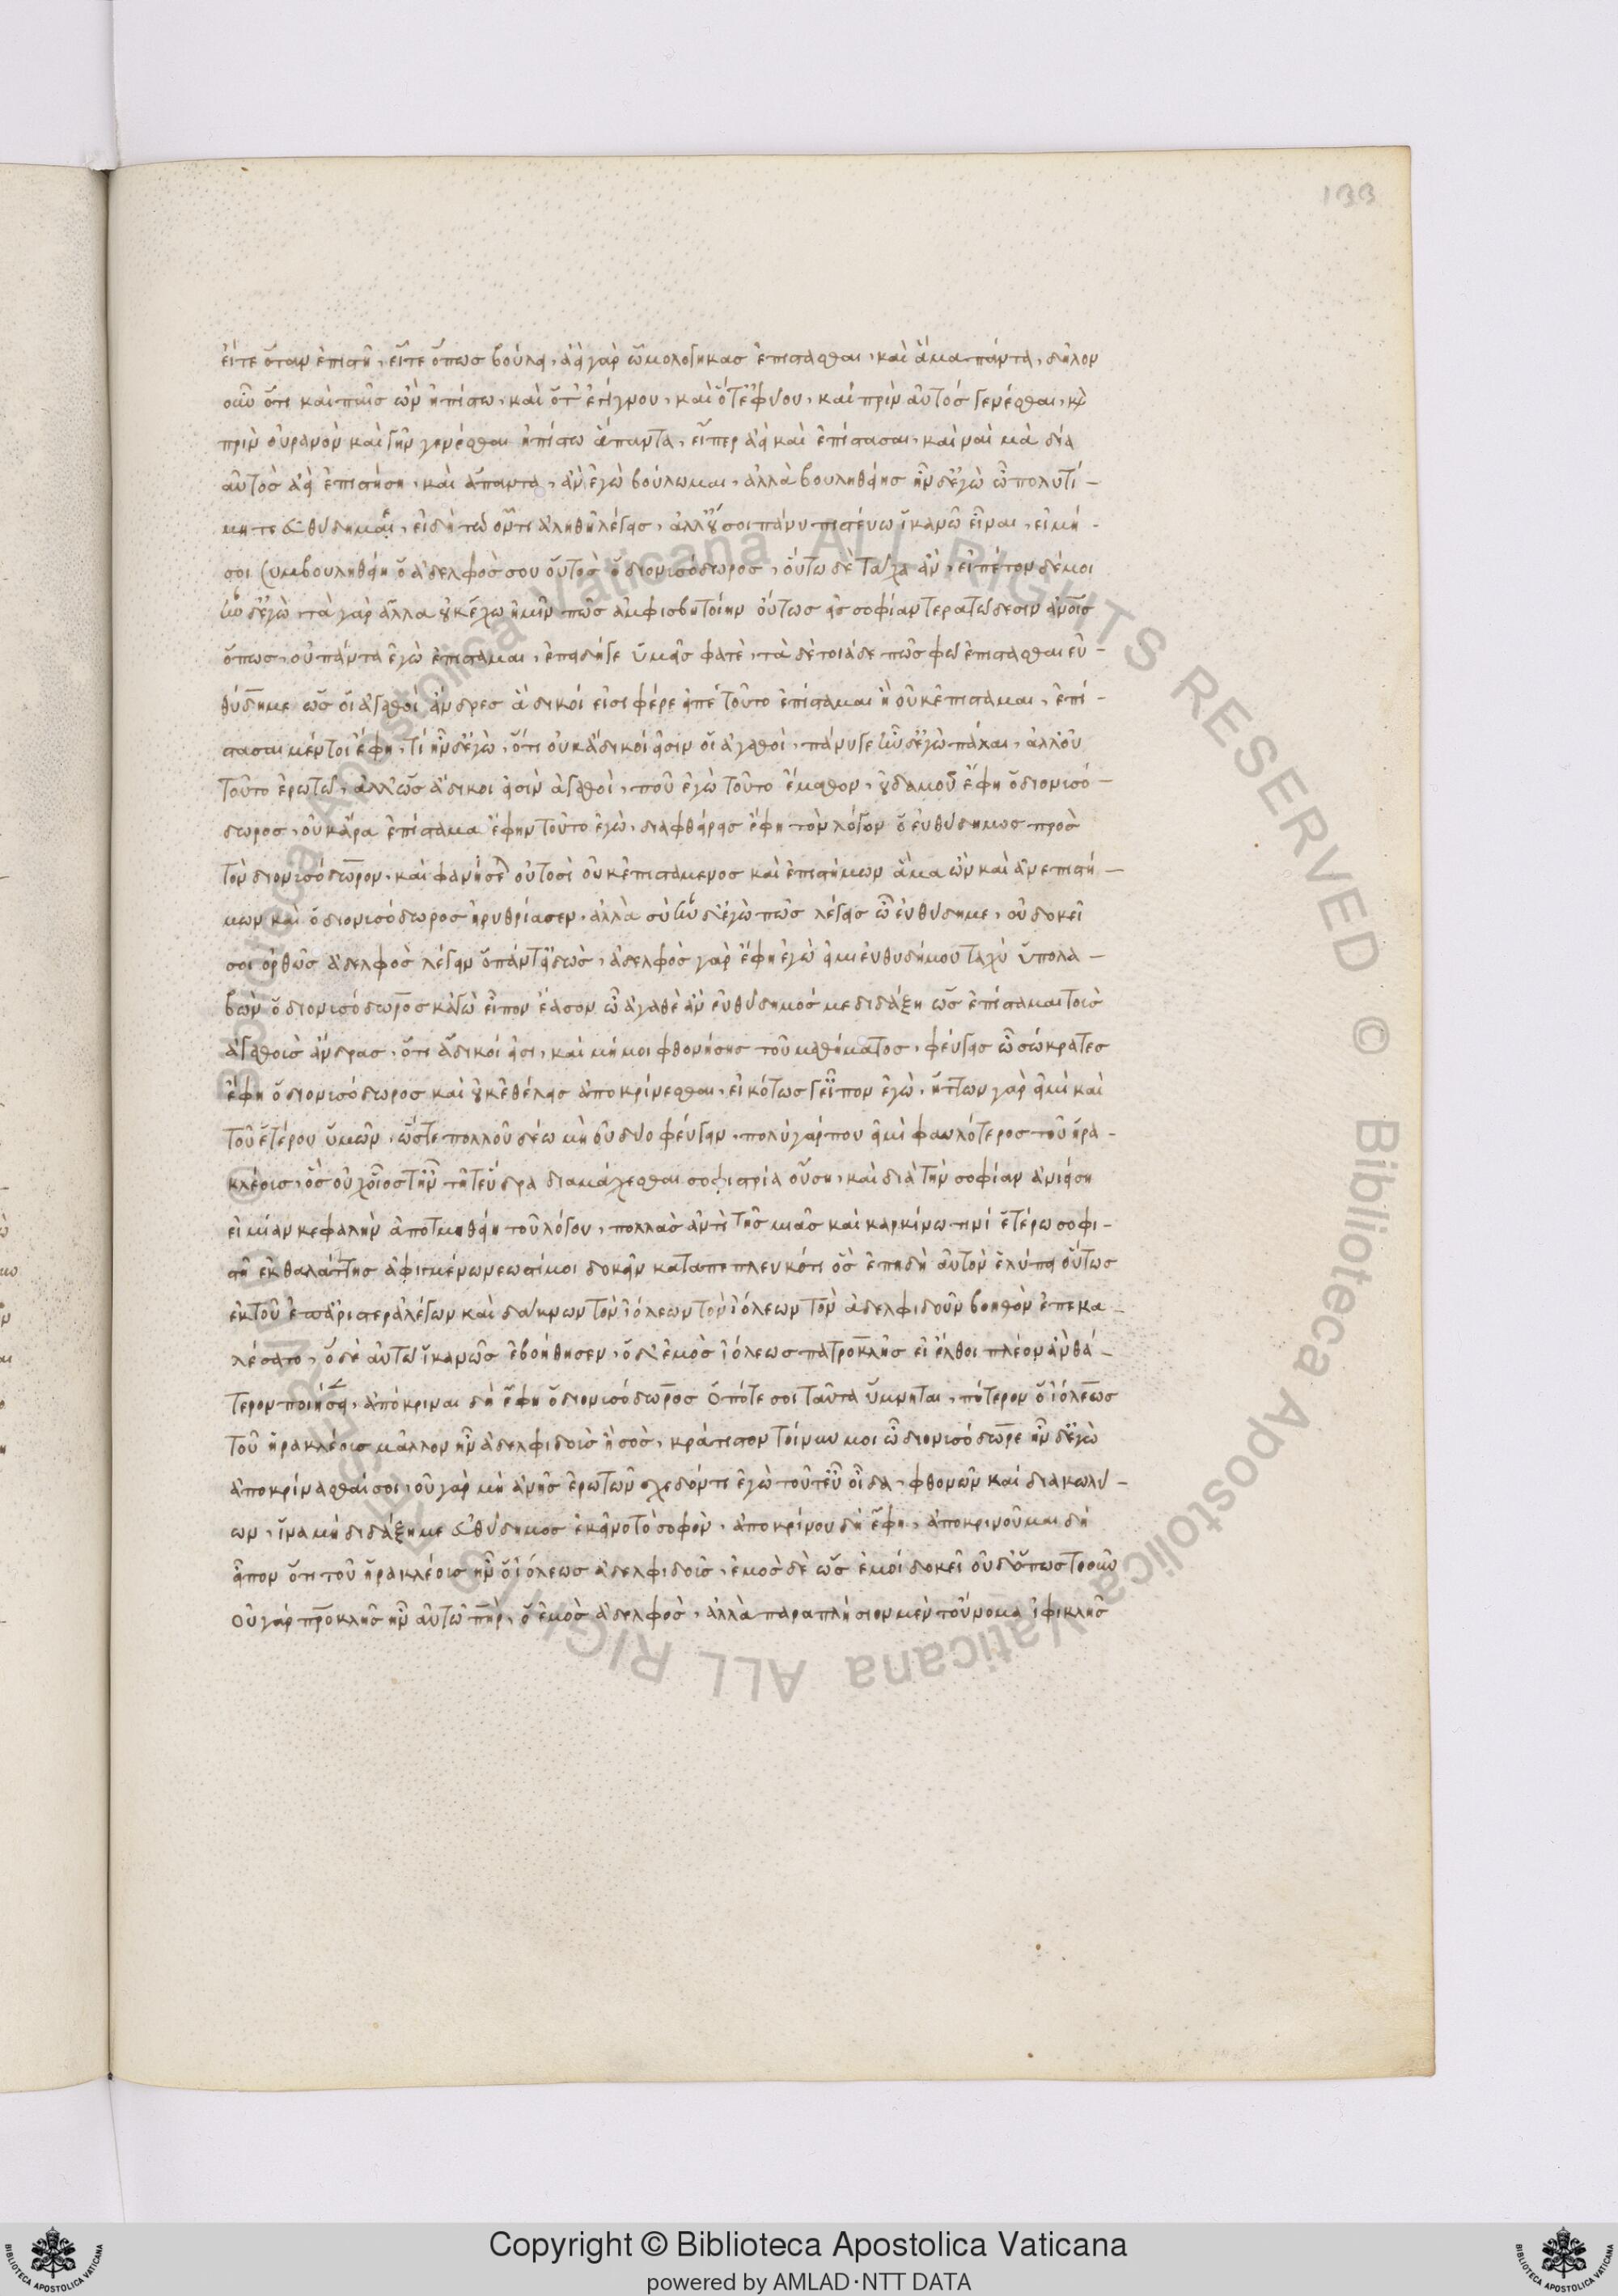 133
εἴτε ὅταν ἐπιστῇ, εἴτε ὅπως βούλει, ἀεὶ γὰρ ὡμολόγηκας ἐπίστασθαι, καὶ ἅμα πάντα, δῆλον
οὖν ὅτι καὶ παῖς ὢν ἠπίστω, καὶ ὅτ' ἐγίγνου, καὶ ὅτ' ἐφύου, καὶ πρὶν αὐτὸς γενέσθαι, κὰι
πρὶν οὐρανὸν καὶ γῆν γενέσθαι ἠπίστω ἅπαντα, εἴπερ ἀεὶ καὶ ἐπίστασαι, καὶ ναὶ μὰ δία
αὐτὸς ἀεὶ ἐπιστήσῃ, καὶ ἅπαντα, ἂν ἐγὼ βούλωμαι, ἀλλὰ βουληθείης ἦν δ' ἐγὼ ὦ πολυτί-
μητε εὐθύδημε, εἰ δὴ τῷ ὄντι ἀληθῆ λέγεις, ἀλλ' οὔ σοι πάνυ πιστεύω ἱκανῷ εἶναι, εἰ μή
σοι συμβουληθείη ὁ ἀδελφός σου οὗτος ὁ διονυσόδωρος, οὕτω δὲ τάχα ἄν, εἴπετον δέ μοι
ἦν δ' ἐγὼ τὰ γὰρ ἄλλα οὐκ ἔχω ὑμῖν πῶς ἀμφισβητοίην οὕτως εἰς σοφίαν τερατώδεσιν ἀνοις
ὅπως, οὐ πάντα ἐγὼ ἐπίσταμαι, ἐπειδή γε ὑμεῖς φατὲ, τὰ δὲ τοιάδε πῶς φῶ ἐπίστασθαι εὐ-
θύδημε ὡς οἱ ἀγαθοὶ ἄνδρες ἄδικοί εἰσι φέρε εἰπὲ τοῦτο ἐπίσταμαι ἢ οὐκ ἐπίσταμαι, ἐπί-
στασαι μέντοι ἔφη, τί ἦν δ' ἐγὼ, ὅτι οὐκ ἄδικοί εἰσιν οἱ ἀγαθοὶ, πάνυ γε ἦν δ' ἐγὼ πάλαι, ἀλλ' οὐ
τοῦτο ἐρωτῶ, ἀλλ' ὡς ἄδικοι εἰσὶν ἀγαθοὶ, ποῦ ἐγὼ τοῦτο ἔμαθον, οὐδαμοῦ ἔφη ὁ διονυσό-
δωρος, οὐκ ἄρα ἐπίσταμαι ἔφην τοῦτο ἐγὼ, διαφθείρεις ἔφη τὸν λόγον ὁ εὐθύδημος πρὸς
τὸν διονυσόδωρον, καὶ φανήσεται οὑτοσὶ οὐκ ἐπιστάμενος καὶ ἐπιστήμων ἅμα ὢν καὶ ἀνεπιστή-
μων καὶ ὁ διονυσόδωρος ἠρυθρίασεν, ἀλλὰ σὺ ἦν δ' ἐγὼ πῶς λέγεις ὦ εὐθύδημε, οὐ δοκεῖ
σοι ὀρθῶς ἀδελφὸς λέγειν ὁ πάντ' εἰδὼς, ἀδελφὸς γὰρ ἔφη ἐγὼ εἰμι εὐθυδήμου ταχὺ ὑπολα-
βὼν ὁ διονυσόδωρος κἀγὼ εἶπον ἔασον ὦ ἀγαθὲ ἂν εὐθύδημός με διδάξῃ ὡς ἐπίσταμαι τοὺς
ἀγαθοὺς ἄνδρας, ὅτι ἄδικοί εἰσι, καὶ μή μοι φθονήσῃς τοῦ μαθήματος, φεύγεις ὦ σώκρατες
ἔφη ὁ διονυσόδωρος καὶ οὐκ ἐθέλεις ἀποκρίνεσθαι, εἰκότως γ' εἶπον ἐγὼ, ἥττων γὰρ εἰμι καὶ
τοῦ ἑτέρου ὑμῶν, ὥστε πολλοῦ δέω μὴ οὐ δύο φεύγειν, πολὺ γάρ που εἰμὶ φαυλότερος τοῦ ἡρα-
κλέους, ὃς οὐχ οἷος τ' ἦν τῇ τε ὕδρᾳ διαμάχεσθαι σοφιστρίᾳ οὔσῃ, καὶ διὰ τὴν σοφίαν ἀνιείσῃ
εἰ μίαν κεφαλὴν ἀποτμηθείη τοῦ λόγου, πολλὰς ἀντὶ τῆς μιᾶς καὶ καρκίνῳ τινὶ ἑτέρῳ σοφι-
στῇ ἐκ θαλάττης ἀφιγμένῳ νεωστί μοι δοκεῖν καταπεπλευκότι ὃς ἐπειδὴ αὐτὸν ἐλύπει οὕτως
ἐκ τοῦ ἐπ' ἀριστερὰ λέγων καὶ δάκνων τὸν ἰόλεων τὸν ἰόλεων τὸν ἀδελφιδοῦν βοηθὸν ἐπεκα-
λέσατο, ὁ δὲ αὐτῷ ἱκανῶς ἐβοήθησεν, ὁ δ' ἐμὸς ἰόλεως πατροκλῆς εἰ ἔλθοι πλέον ἂν θά-
τερον ποιήσει, ἀπόκριναι δὴ ἔφη ὁ διονυσόδωρος ὁπότε σοι ταῦτα ὕμνηται, πότερον ὁ ἰόλεως
τοῦ ἡρακλέους μᾶλλον ἦν ἀδελφιδοῦς ἢ σὸς, κράτιστον τοίνυν μοι ὦ διονυσόδωρε ἦν δ' ἐγὼ
ἀποκρίνασθαί σοι, οὐ γὰρ μὴ ἀνῇς ἐρωτῶν σχεδόν τι ἐγὼ τοῦτ' εὖ οἶδα, φθονῶν καὶ διακωλύ-
ων, ἵνα μὴ διδάξῃ με εὐθύδημος ἐκεῖνο τὸ σοφὸν, ἀποκρίνου δὴ ἔφη, ἀποκρινοῦμαι δὴ
εἶπον ὅτι τοῦ ἡρακλέους ἦν ὁ ἰόλεως ἀδελφιδοῦς, ἐμὸς δὲ ὡς ἐμοὶ δοκεῖ οὐδ' ὁπωστιοῦν
οὐ γὰρ πατροκλῆς ἦν αὐτῷ πατὴρ, ὁ ἐμὸς ἀδελφὸς, ἀλλὰ παραπλήσιον μὲν τοὔνομα ἰφικλῆς
Copyright © Biblioteca Apostolica Vaticana
powered by AMLAD·NTT DATA